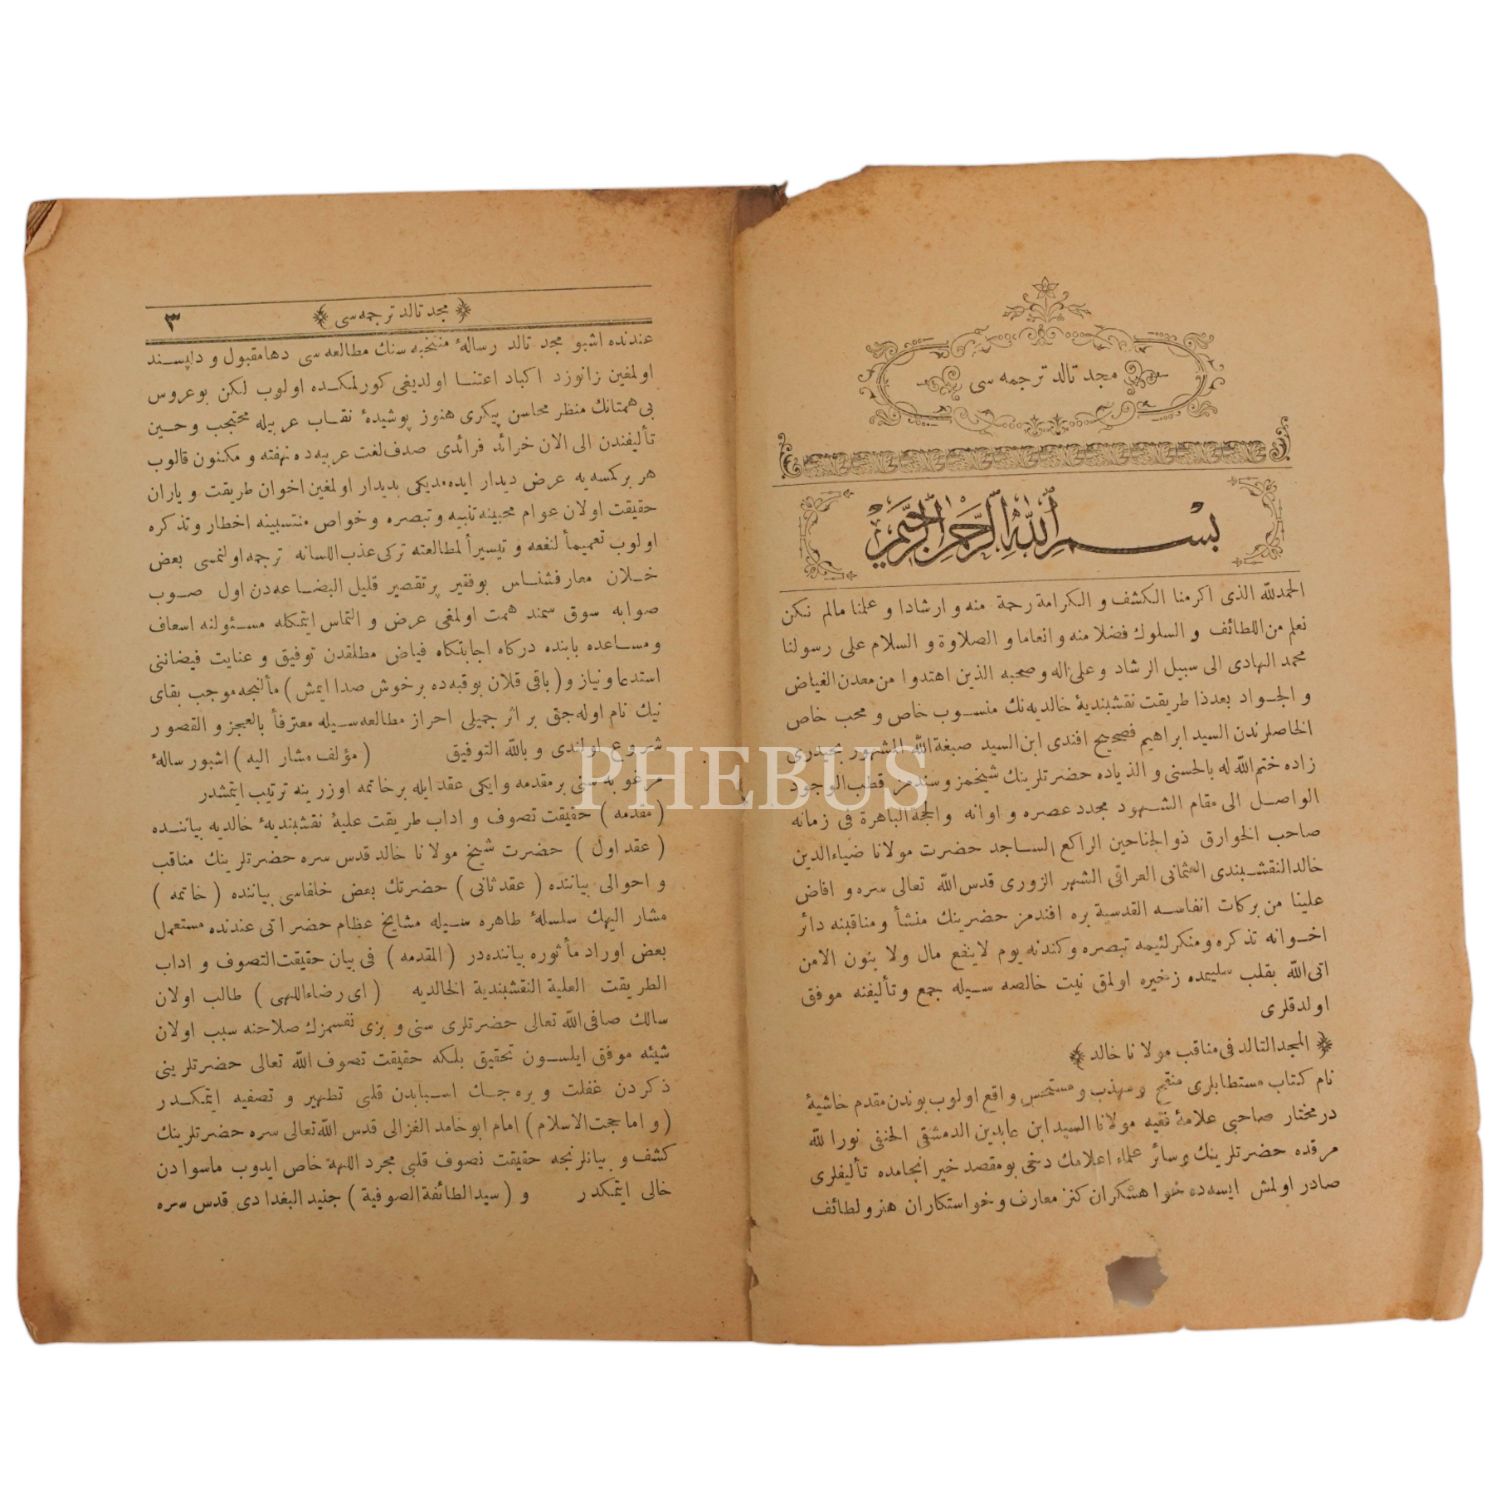 مجد تالد ترجمه سی
بسم الله الرحمن الرحیم
الحمدلله الذی اکرمنا الکشف و الکرامة رحمة منه و ارشادا و علمنا مالم نکن
نعلم من اللطائف و السلوك فضلا منه و انعاما و الصلاوة و السلام علی رسولنا
محمد الهادی الی سبیل الرشاد و علی اله و صحبه الذین اهتدوا من معدن الفیاض
و الجواد بعدذا طریقت نقشبندیهٔ خالدیه نك منسوب خاص و محب خاص
الخاصلرندن السید ابراهیم فصیح افندی ابن السید صبغة الله المشهور بحیدری
زاده ختم الله له بالحسنی و الزیاده حضرتلرینك شیخمز و سندمز قطب الوجود
الواصل الی مقام الشهود مجدد عصره و اوانه والحجة الباهرة فی زمانه
صاحب الخوارق ذو الجناحین الراکع الساجد حضرت مولانا ضیاءالدین
خالد النقشبندی العثمانی العراقی الشهر الزوری قدس الله تعالی سره و افاض
علینا من برکات انفاسه القدسیة بره افندمز حضرینك منشأ و مناقبنه دائر
اخوانه تذکره و منکر لئیمه تبصره و کندنه یوم لاینفع مال ولا بنون الامن
اتی الله بقلب سلیمده زخیره اولمق نیت خالصه سیله جمع و تألیفنه موفق
اولدقلری
المجد التالد فی مناقب مولانا خالد
نام کتاب مستطابلری منقح و مهذب و مستحسن واقع اولوب بوندن مقدم حاشیهٔ
درمختار صاحبی علامهٔ فقیه مولانا السید ابن عابدین الدمشقی الحنفی نورالله
مرقده حضرتلرینك و سائر علماء اعلامك دخی بو مقصد خیر انجامده تألیفلری
صادر اولمش ایسه ده خواهشکران کنز معارف و خواستکاران هنر و لطائف
مجد تالد ترجمه سی ٣
عندنده اشبو مجد تالد رسالهٔ منتخبه سنك مطالعه سی دها مقبول و دلپسند
اولمغین زانوزد اکباد اعتنا اولدیغی کورلمکده اولوب لکن بو عروس
بی همتانك منظر محاسن پیکری هنوز پوشیدهٔ نقاب عربیله محتجب و حین
تألیفندن الی الان خرائد فرائدی صدف لغت عربیه ده نهفته و مکنون قالوب
هر برکمسه یه عرض دیدار ایده مدیکی بدیدار اولمغین اخوان طریقت و یاران
حقیقت اولان عوام محبینه تنبیه و تبصره و خواص منتسبینه اخطار و تذکره
اولوب تعمیماً لنفعه و تیسیراً لمطالعته ترکی عذب اللسانه ترجمه اولنمسی بعض
خلان معارفشناس بو فقیر پرتقصیر قلیل البضاعه دن اول صوب
صوابه سوق سمند همت اولمغی عرض و التماس ایتمکله مسئولنه اسعاف
و مساعده بابنده درکاه اجابتکاه فیاض مطلقدن توفیق و عنایت فیضاننی
استدعا و نیاز و (باقی قلان بو قبه ده بر خوش صدا ایمش) مألنجه موجب بقای
نیك نام اوله جق بر اثر جمیلی احراز مطالعه سیله معترفاً بالعجز و القصور
شروع اولندی و بالله التوفیق (مؤلف مشار الیه) اشبو رسالهٔ
مرغوبه سنی بر مقدمه و ایکی عقد ایله بر خاتمه اوزرینه ترتیب ایتمشدر
(مقدمه) حقیقت تصوف و اداب طریقت علیهٔ نقشبندیهٔ خالدیه بیاننده
(عقد اول) حضرت شیخ مولانا خالد قدس سره حضرتلرینك مناقب
و احوالی بیاننده (عقد ثانی) حضرتك بعض خلفاسی بیاننده (خاتمه)
مشار الیهك سلسلهٔ طاهره سیله مشایخ عظام حضراتی عندنده مستعمل
بعض اوراد مأثوره بیاننده در (المقدمه) فی بیان حقیقت التصوف و اداب
الطریقت العلیة النقشبندیة الخالدیه (ای رضاء اللهی) طالب اولان
سالك صافی الله تعالی حضرتلری سنی و بزی نفسمزك صلاحنه سبب اولان
شیئه موفق ایلسون تحقیق بلکه حقیقت تصوف الله تعالی حضرتلرینی
ذکردن غفلت ویره جك اسبابدن قلبی تطهیر و تصفیه ایتمکدر
(و اما حجت الاسلام) امام ابو حامد الغزالی قدس الله تعالی سره حضرتلرینك
کشف و بیانلرنجه حقیقت تصوف قلبی مجرد اللهه خاص ایدوب ماسوادن
خالی ایتمکدر و (سید الطائفة الصوفیة) جنید البغدادی قدس سره
PHEBUS